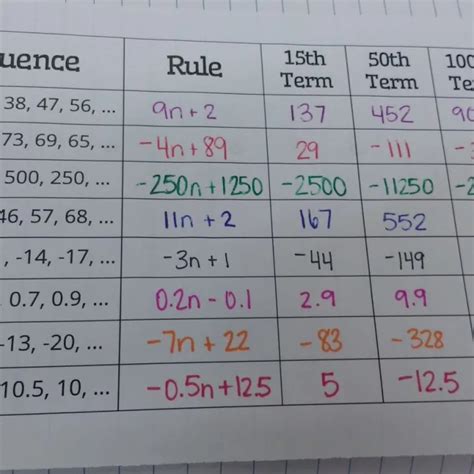 uence Rule 15th Term 50th Term 100 Te
38, 47, 56, ... 9n + 2 137 452 90
73, 69, 65, ... -4n + 89 29 -111
500, 250, ... -250n + 1250 -2500 -11250 -2
46, 57, 68, ... 11n + 2 167 552
, -14, -17, ... -3n + 1 -44 -149
, 0.7, 0.9, ... 0.2n - 0.1 2.9 9.9
-13, -20, ... -7n + 22 -83 -328
10.5, 10, ... -0.5n + 12.5 5 -12.5